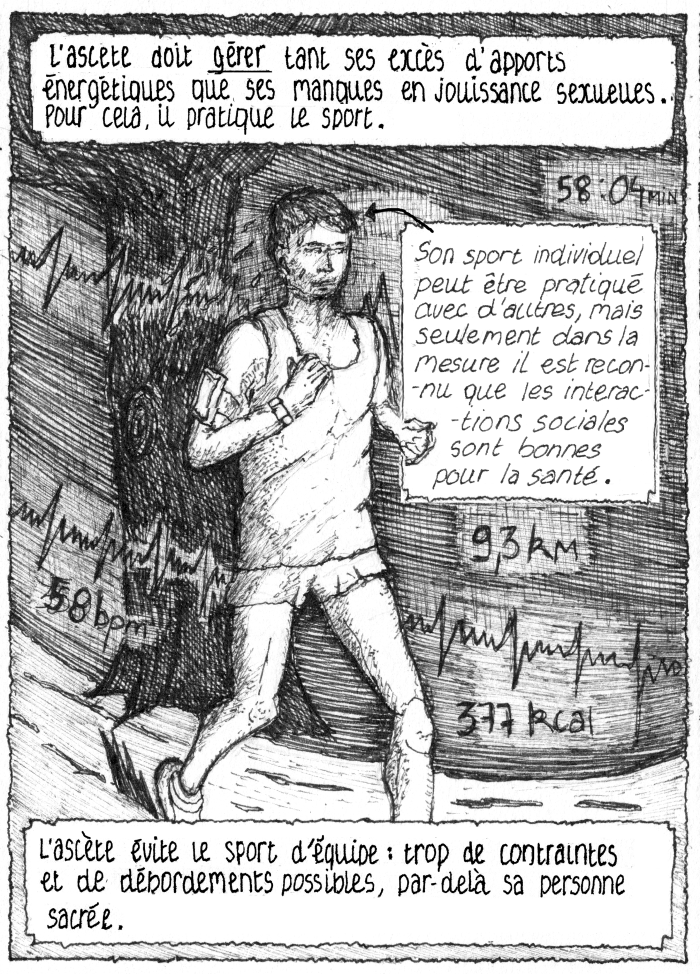 L'ascète doit gérer tant ses excès d'apports
énergétiques que ses manques en jouissance sexuelles.
Pour cela, il pratique le sport.
58:04 MIN
Son sport individuel
peut être pratiqué
avec d'autres, mais
seulement dans la
mesure il est recon-
-nu que les interac-
-tions sociales
sont bonnes
pour la santé.
9,3 km
58 bpm
377 kcal
L'ascète évite le sport d'équipe : trop de contraintes
et de débordements possibles, par-delà sa personne
sacrée.